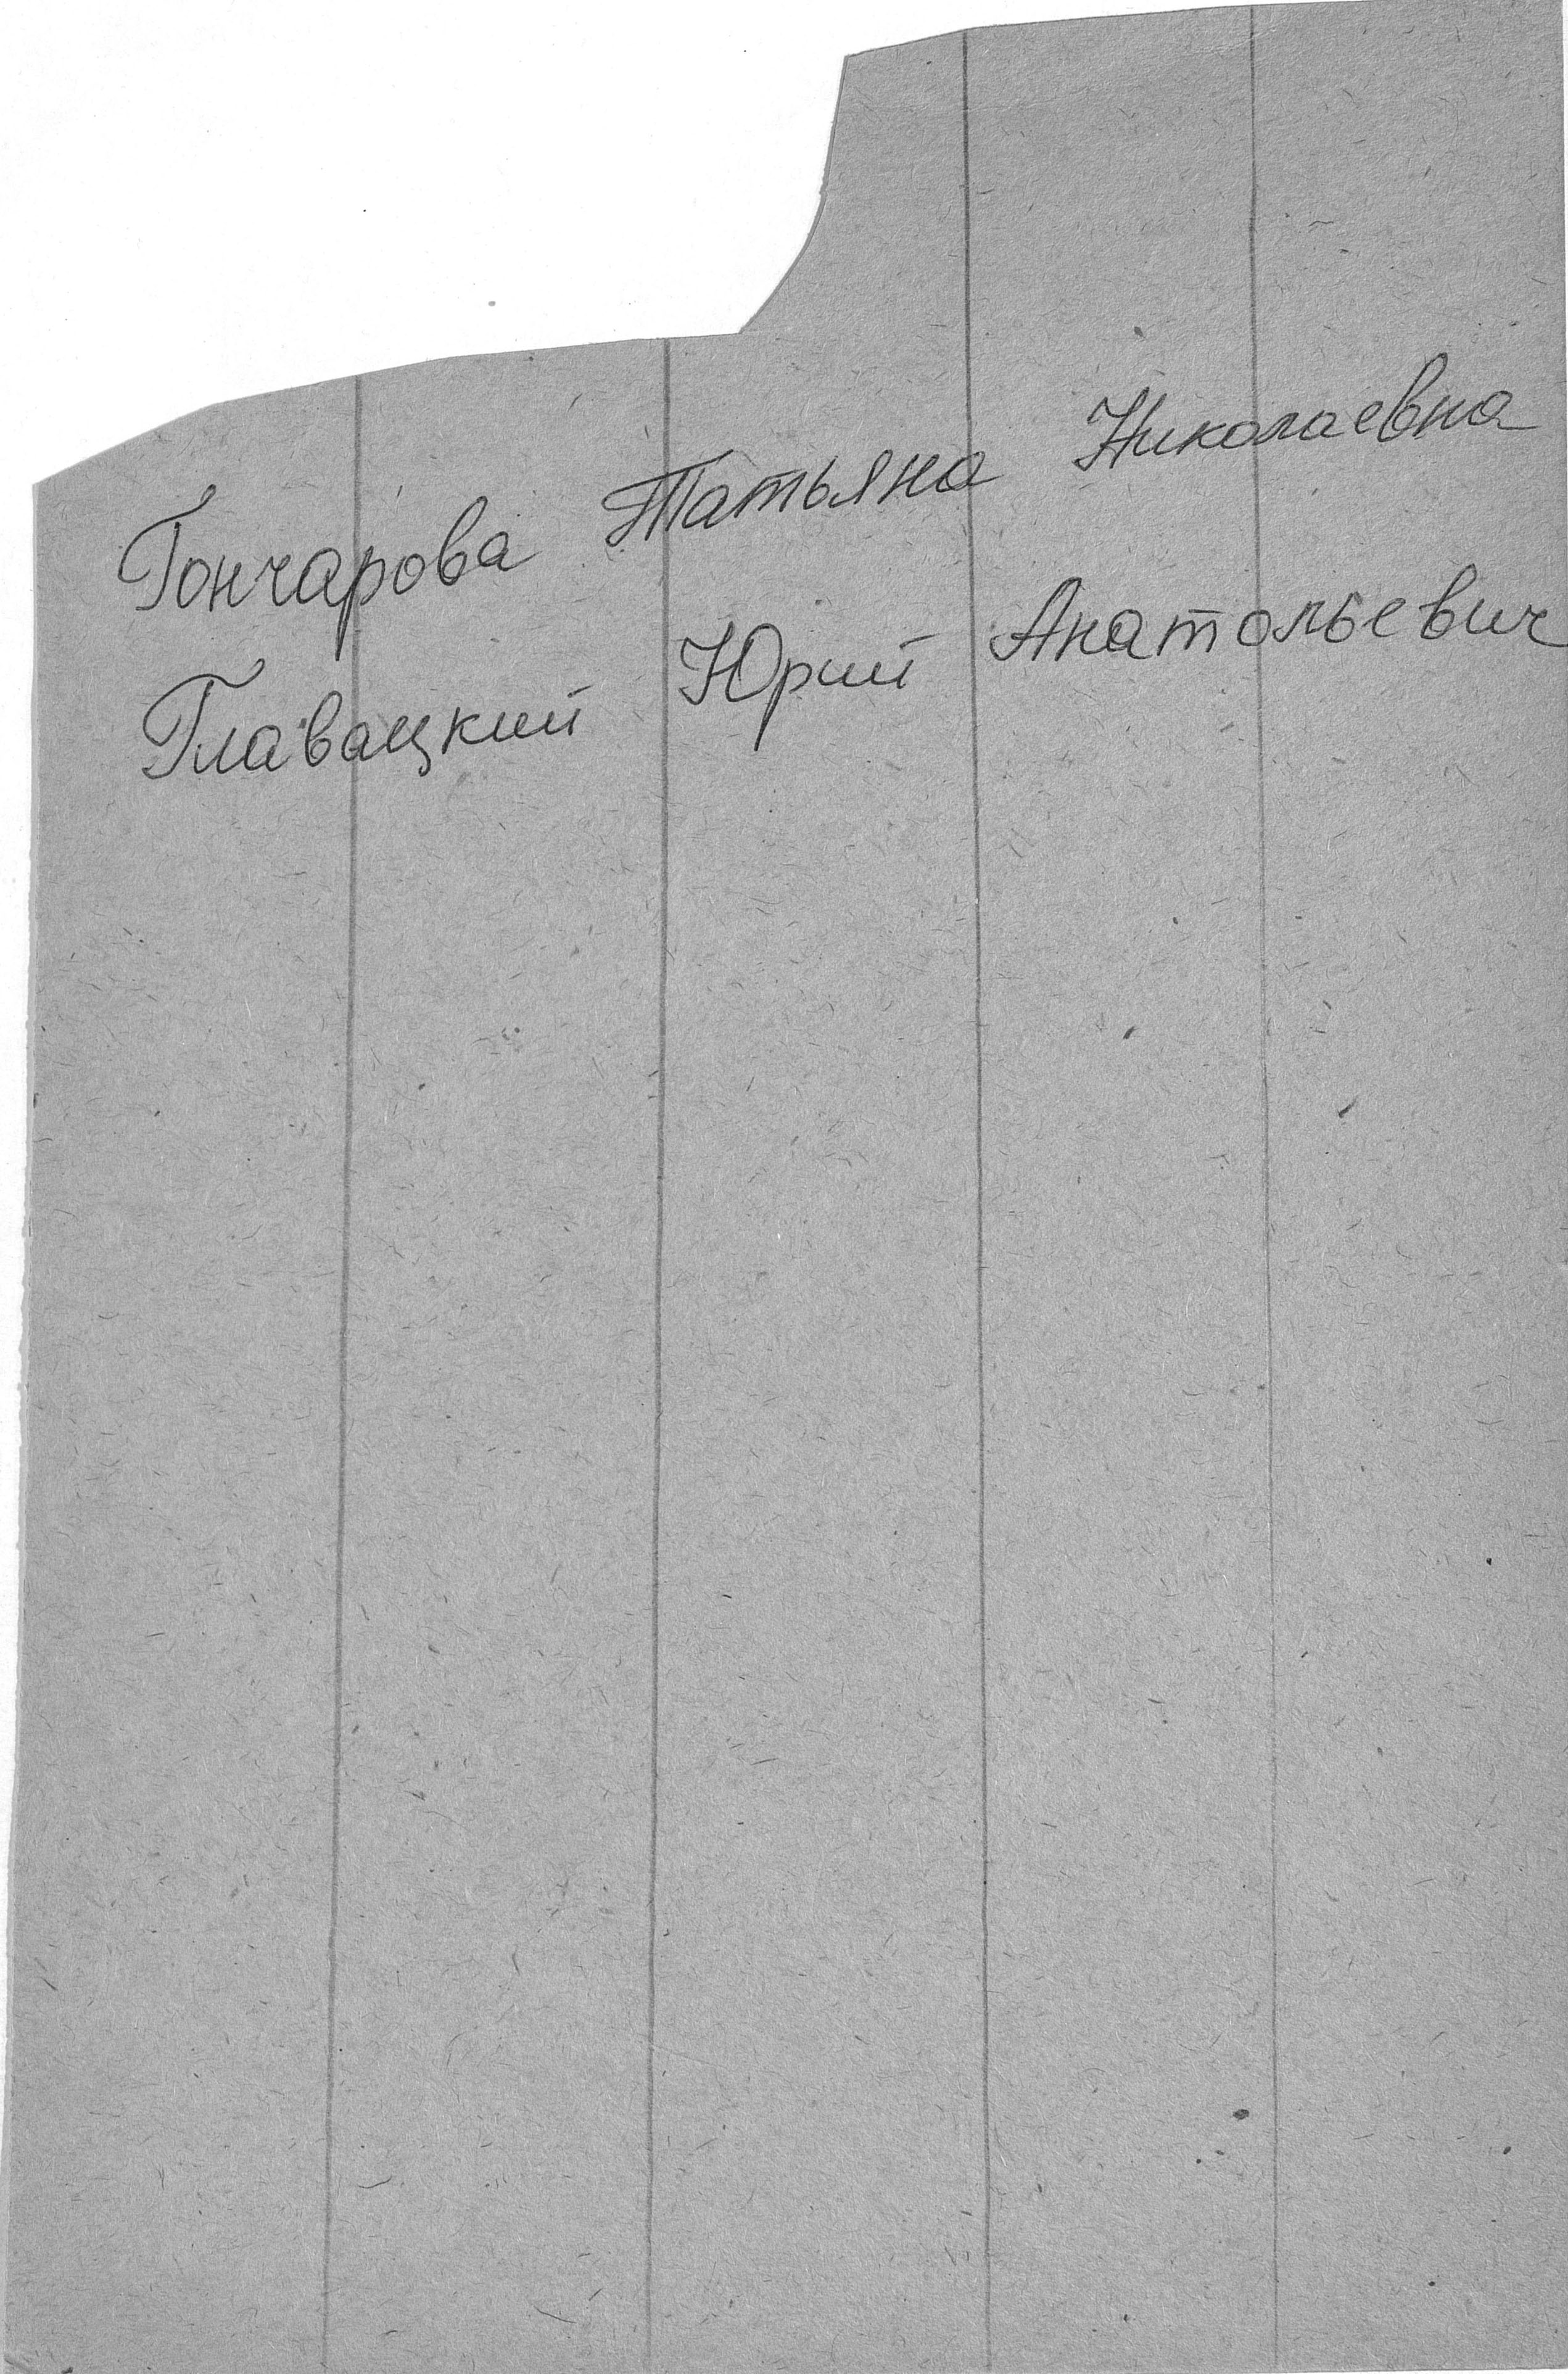 Гончарова Татьяна Николаевна
Главацкий Юрий Анатольевич